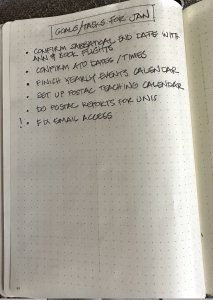 GOALS/TASKS FOR JAN
• CONFIRM SABBATICAL END DATE WITH
ANN & BOOK FLIGHTS
• CONFIRM ATD DATES/TIMES
• FINISH YEARLY EVENTS CALENDAR
• SET UP POSTAC TEACHING CALENDAR
• DO POSTAC REPORTS FOR UNIS
! • FIX GMAIL ACCESS